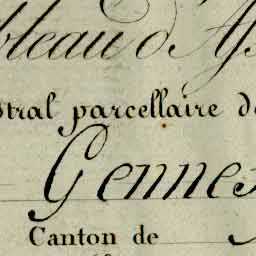 bleau d'As
stral parcellaire d
Gennes
Canton de